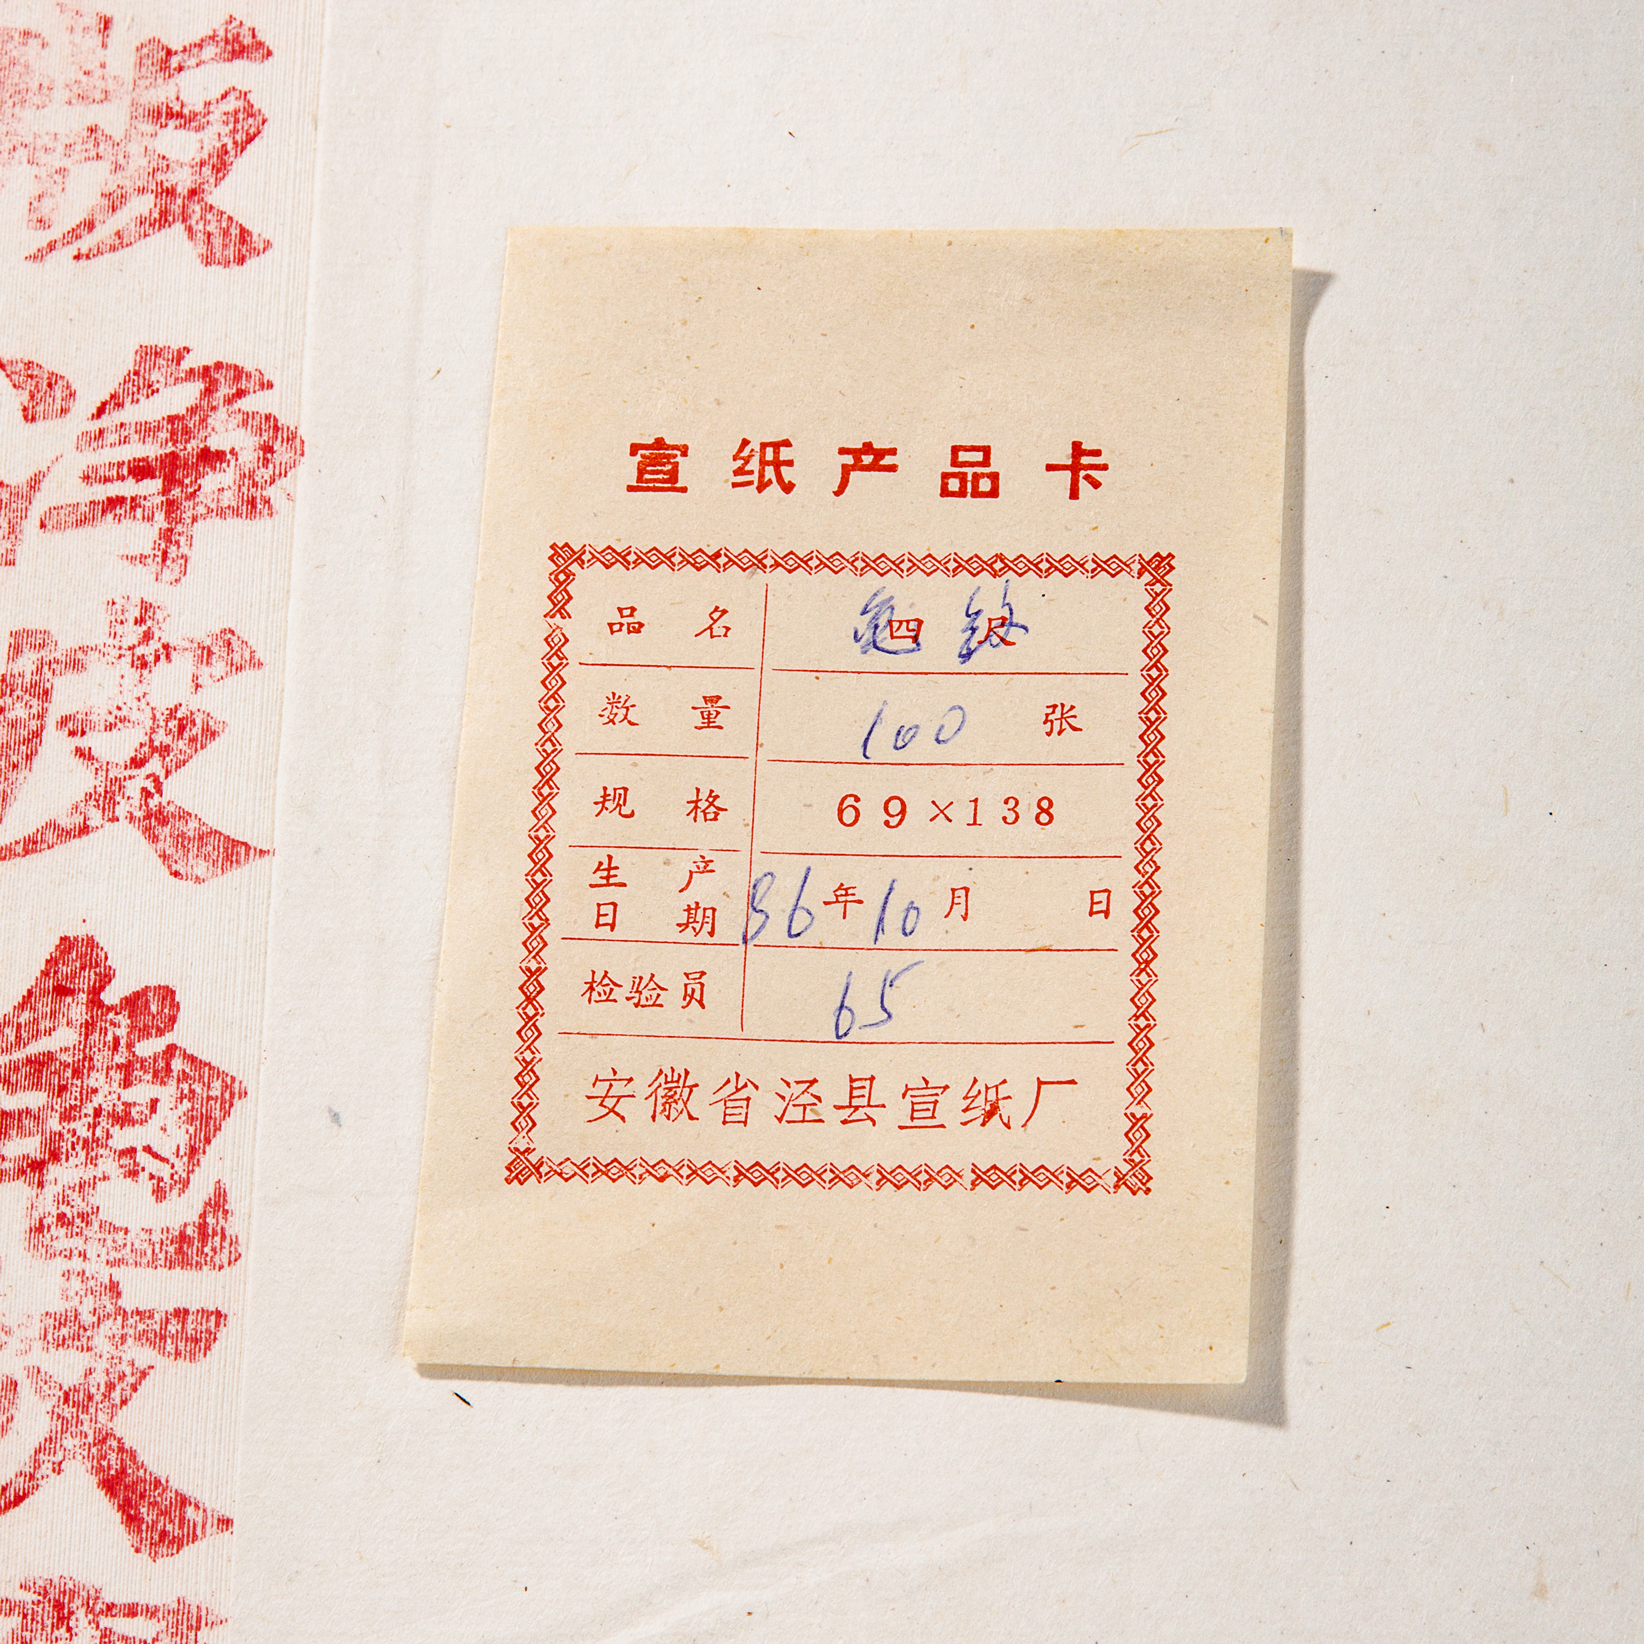 净皮
宣纸产品卡
品名 四尺
数量 100 张
规格 69×138
生产日期 86年10月 日
检验员 65
安徽省泾县宣纸厂